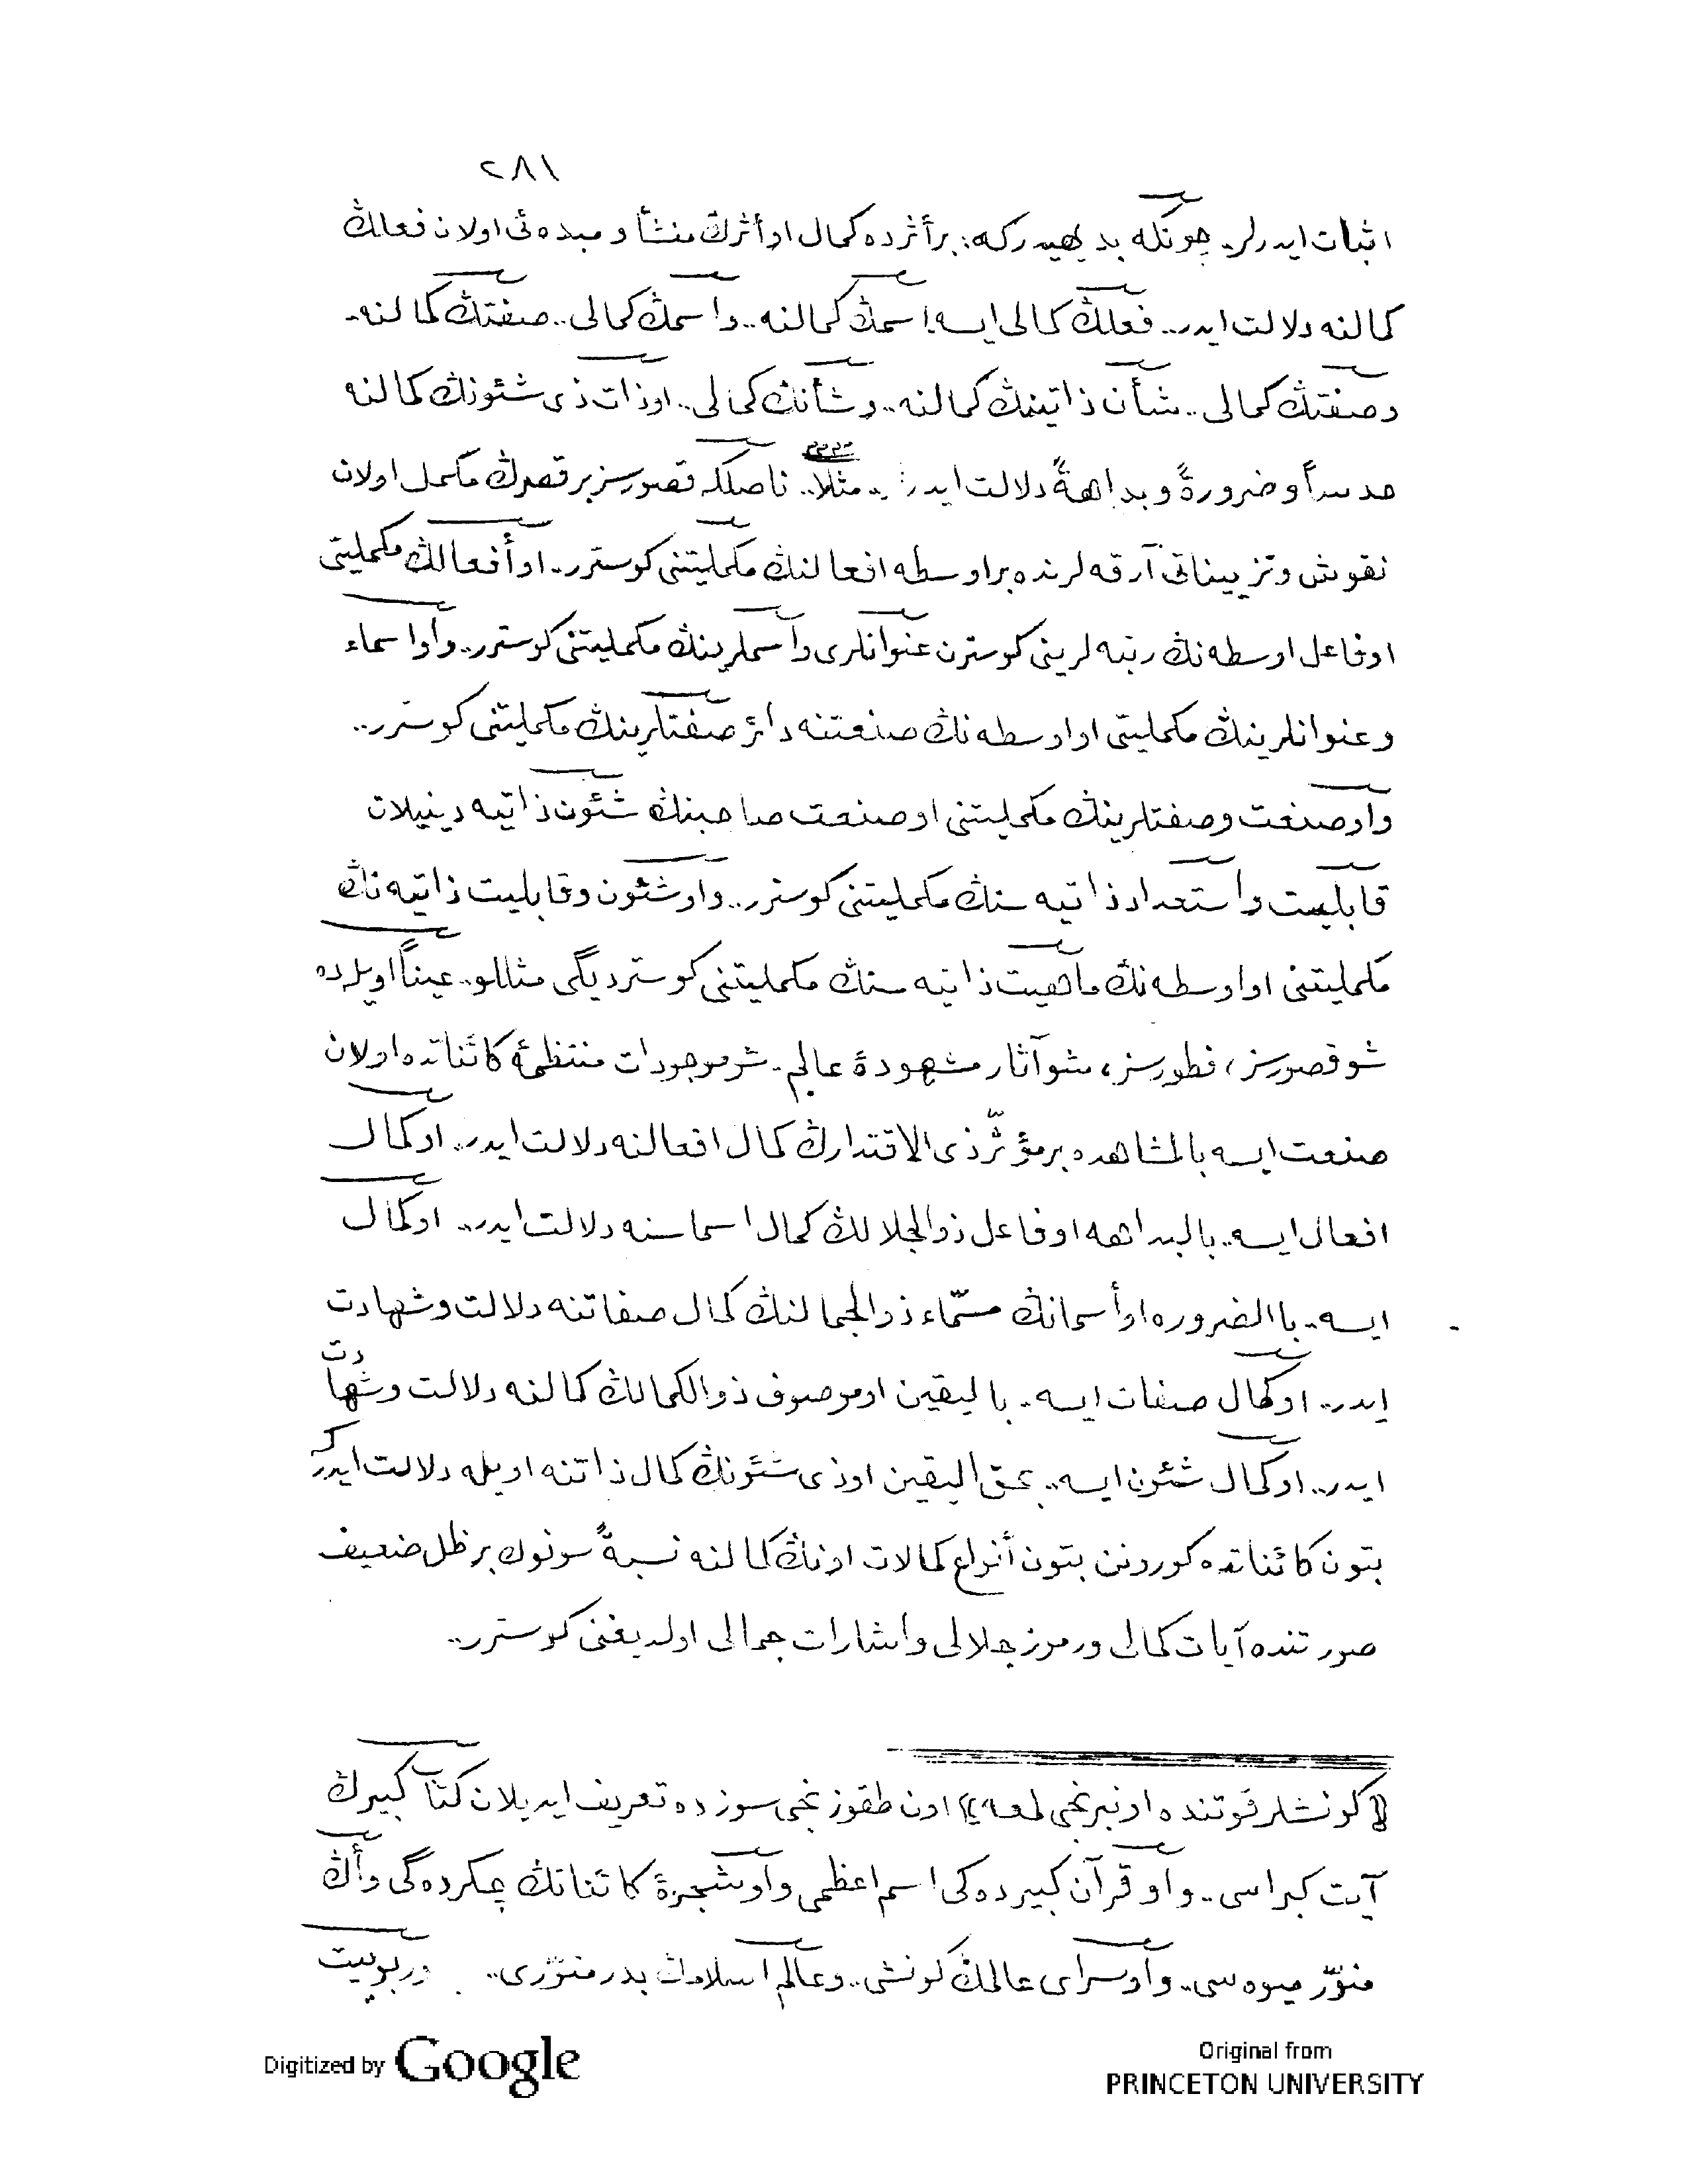 ٢٨١
اثبات ايدرلر. چونكه بديهيدركه: برأثرده كمال اوأثرڭ منشأ و مبدءئی اولان فعلڭ
كمالنه دلالت ايدر.. فعلڭ كمالی ايسه اسمڭ كمالنه.. واسمڭ كمالی.. صفتڭ كمالنه.
وصفتڭ كمالی.. شأن ذاتينڭ كمالنه.. وشأنڭ كمالی.. اوذات ذی شئونڭ كمالنه
حدساً و ضرورةً و بداهةً دلالت ايدر.. مثلا.. ناصلكه قصورسز برقصرڭ مكمل اولان
نقوش وتزييناتی آرقه لرنده براوسطه افعالنڭ مكمليتنی كوسترر.. اوأفعالڭ مكمليتی
اوفاعل اوسطه نڭ رتبه لرينی كوسترن عنوانلری وأسملرينڭ مكمليتنی كوسترر.. وأواسماء
وعنوانلرينڭ مكمليتی اواوسطه نڭ صنعتنه دائر صفتلرينڭ مكمليتنی كوسترر..
واوصنعت وصفتلرينڭ مكمليتنی اوصنعت صاحبنڭ شئون ذاتيه دينيلان
قابليت وأستعداد ذاتيه سنڭ مكمليتنی كوسترر.. واوشئون وقابليت ذاتيه نڭ
مكمليتنی اواوسطه نڭ ماهيت ذاتيه سنڭ مكمليتنی كوسترديگی مثللو.. عيناً اويله ده
شوقصورسز، فطورسز، شوآثار مشهودۀ عالم. شوموجودات منتظمۀ كائناتده اولان
صنعت ايسه بالمشاهده برمؤثّر ذی الاقتدارڭ كمال افعالنه دلالت ايدر.. اوكمال
افعال ايسه.. بالبداهه اوفاعل ذوالجلالڭ كمال اسماسنه دلالت ايدر.. اوكمال
ايسه.. باالضروره اوأسمانڭ مسمّاء ذوالجمالنڭ كمال صفاتنه دلالت وشهادت
ايدر.. اوكمال صفات ايسه. باليقين اوموصوف ذوالكمالڭ كمالنه دلالت وشهادت
ايدر.. اوكمال شئون ايسه.. بحق اليقين اوذی شئونڭ كمال ذاتنه اويله دلالت ايدركه
بتون كائناتده كورونن بتون أنواع كمالات اونڭ كمالنه نسبةً سونوك برظل ضعيف
صورتنده آيات كمالی ورموز جلالی واشارات جمالی اولديغنی كوسترر..
كونشلر قوتنده اونبرنجی لمعه اون طقوزنجی سوزده تعريف ايديلان كتاب كبيرڭ
آيت كبراسی.. واو قرآن كبيرده كی اسم اعظمی واوشجرۀ كائناتڭ چكرده گی وأڭ
منوّر ميوه سی.. واوسرای عالمڭ كونشی.. وعالم اسلامڭ بدر منوّری.. وربوبيت
Digitized by Google
Original from
PRINCETON UNIVERSITY